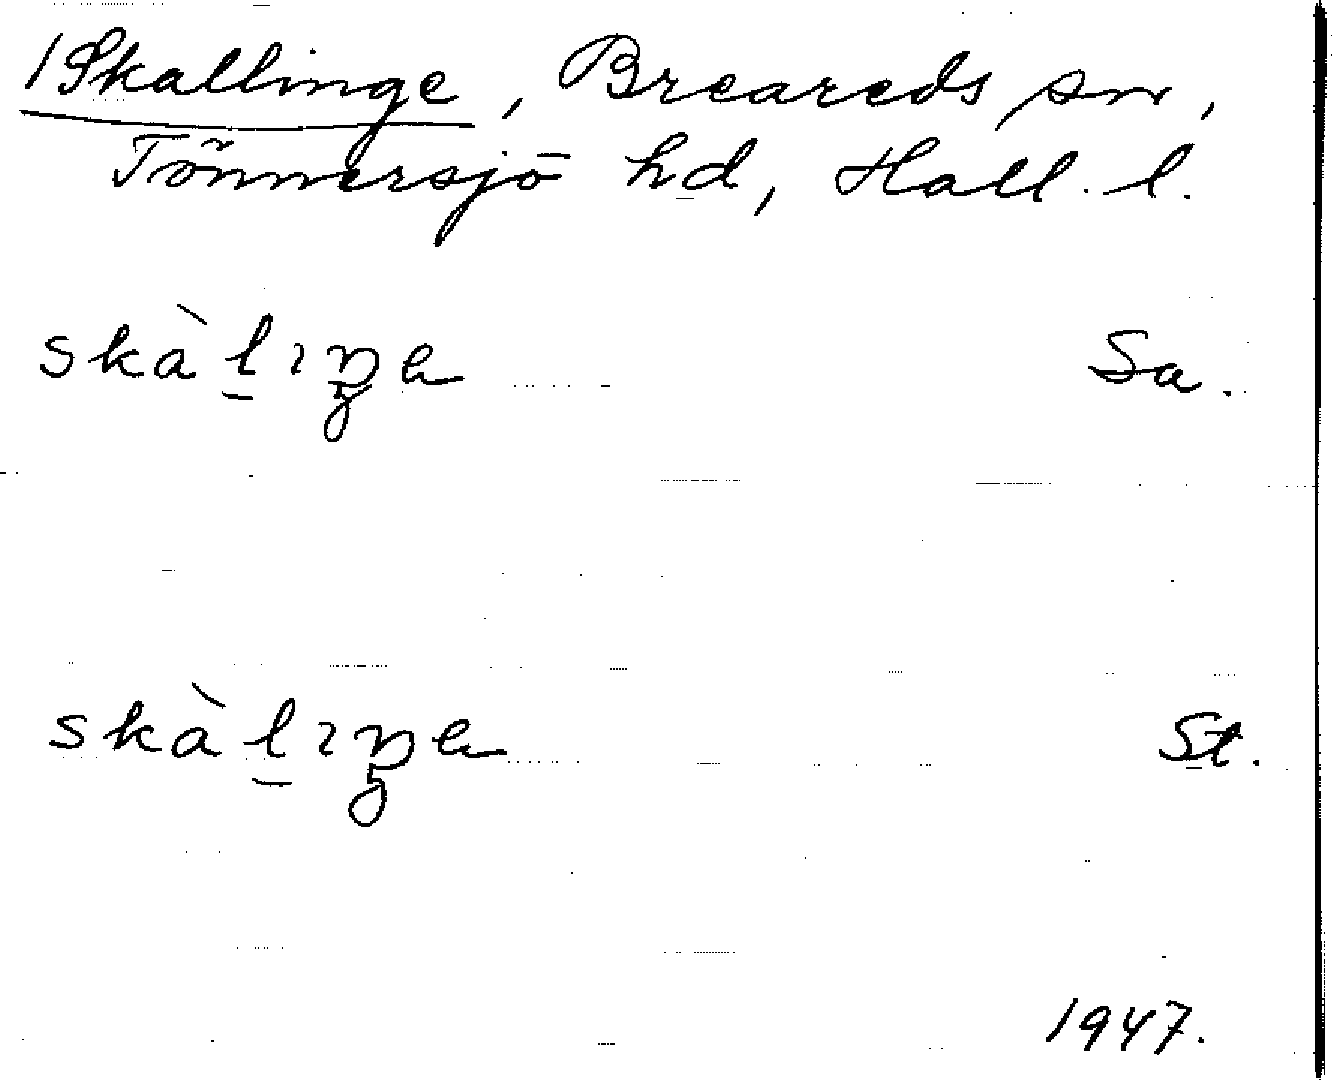 /Skallinge, Breareds sn,
Tönnersjö hd, Hall. l.
skàl̠ıŋe Sa.
skàl̠ıŋe St.
1947.